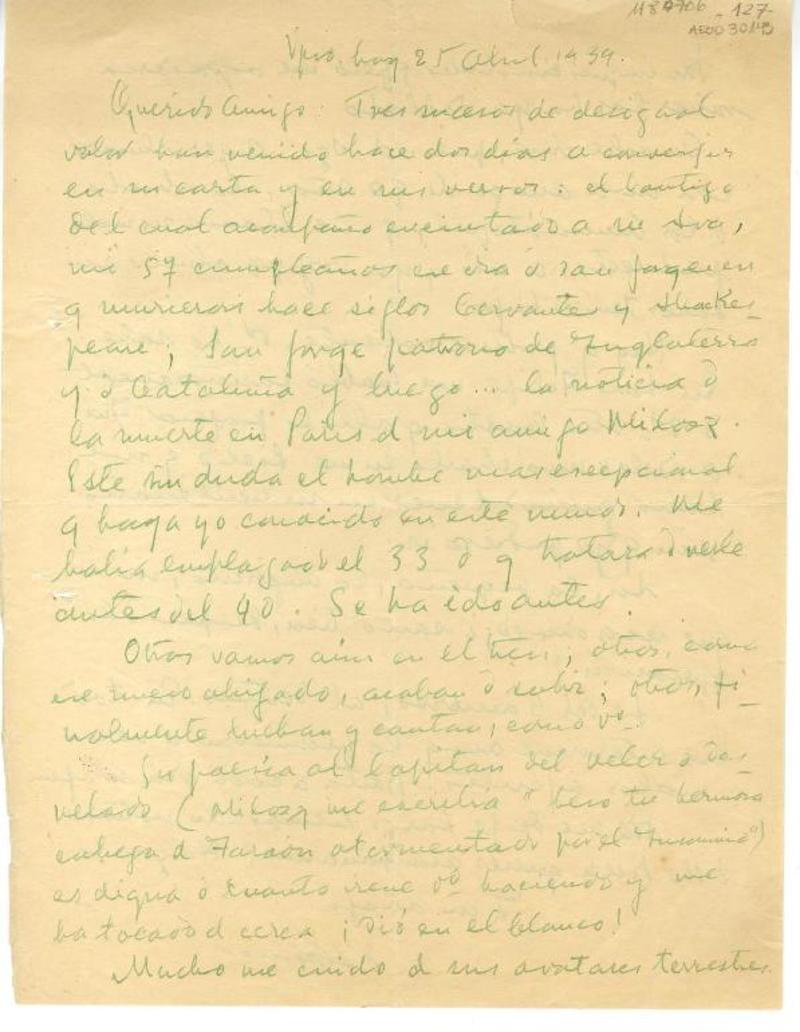 1184706 - 127-
AE0030143
Vpso, hoy 25 Abril 1939.
Querido Amigo: Tres sucesos de desigual
valor han venido hace dos días a converjer
en su carta y en sus versos: el bautizo
del cual acompaño encintado a su Sra,
mi 57 cumpleaños ese día d San Jorge en
q murieron hace siglos Cervantes y Shakes-
peare; San Jorge patrono de Inglaterra
y d Cataluña y luego... la noticia d
la muerte en Paris d mi amigo Milosz.
Este sin duda el hombre mas excepcional
q haya yo conocido en este mundo. Me
había emplazado el 33 d q tratara d verle
antes del 40. Se ha ido antes.
Otros vamos aún en el tren; otros, como
ese nuevo ahijado, acaban d subir; otros, fi-
nalmente luchan y cantan, como Vd.
Su poesía al Capitan del velero des-
velado (Milosz me escribía "beso tu hermosa
cabeza d Faraón atormentado por el Insomnio")
es digna d cuanto viene Vd haciendo y me
ha tocado d cerca ¡dió en el blanco!
Mucho me cuido d sus avatares terrestres